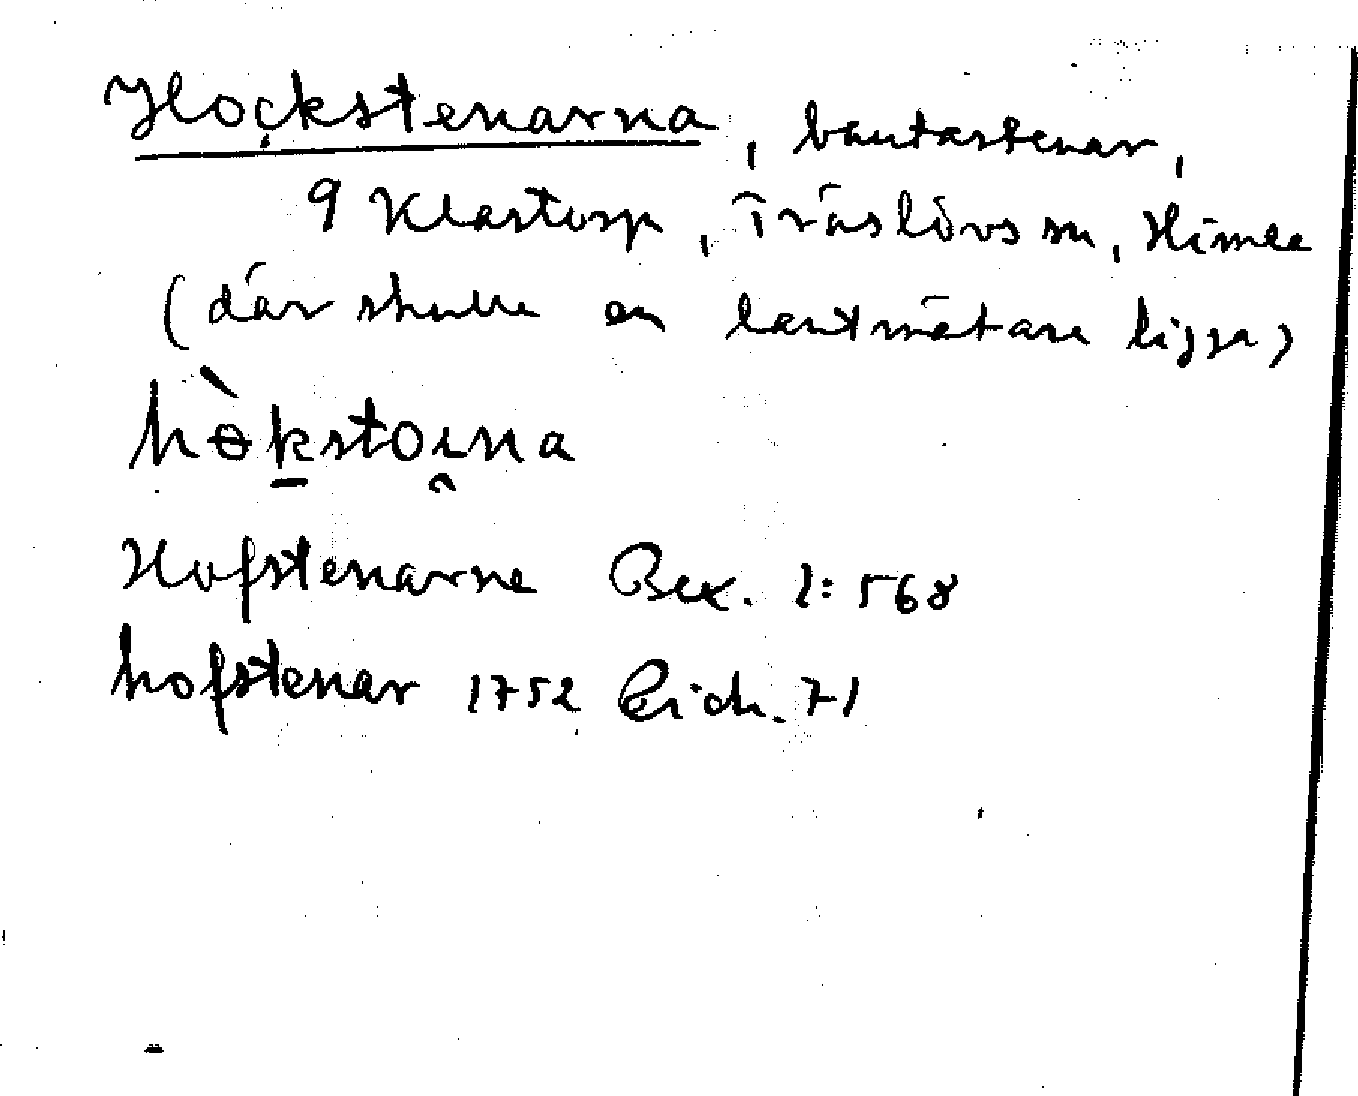 Hockstenarna, bautastenar,
9 Klastorp, Träslövs sn, Himle
(där skulle en lantmätare ligga)
hὸkstoına
Hofstenarne Bex. 2:568
hofstenar 1752 Rich. 71